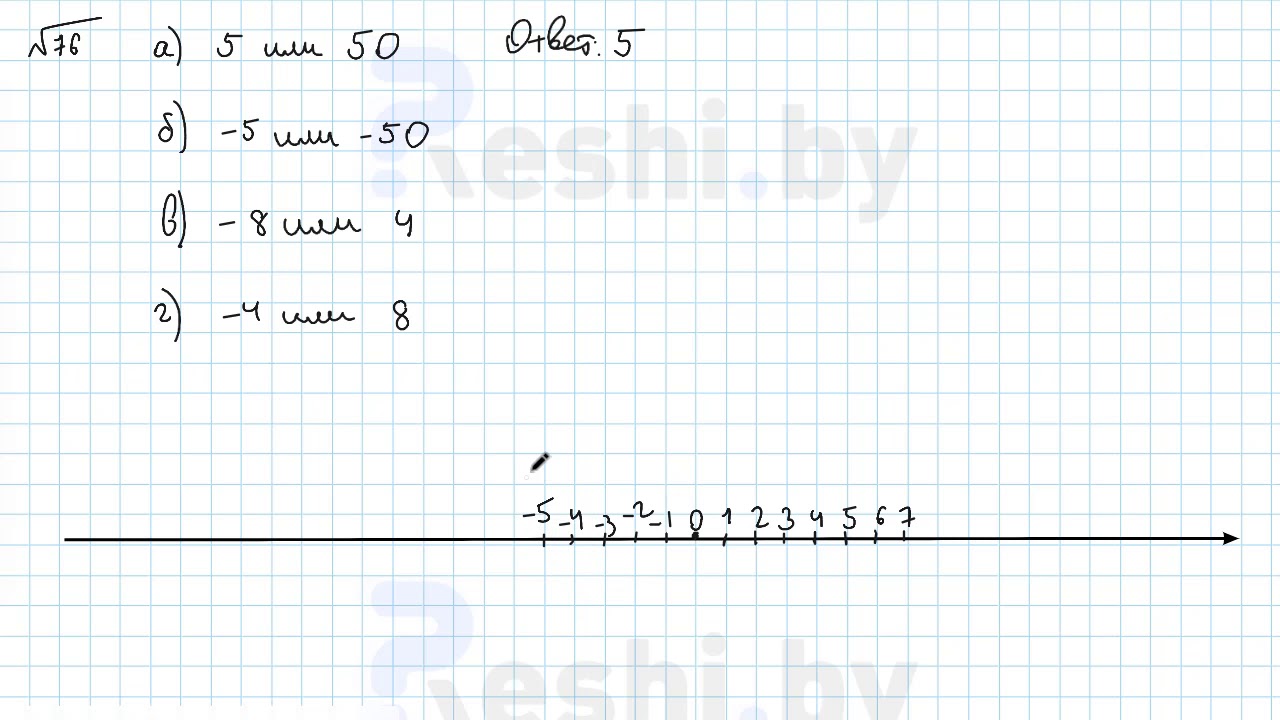 √76 а) 5 или 50 Ответ: 5
б) -5 или -50
в) -8 или 4
г) -4 или 8
-5 -4 -3 -2 -1 0 1 2 3 4 5 6 7
Reshi.by
Reshi.by